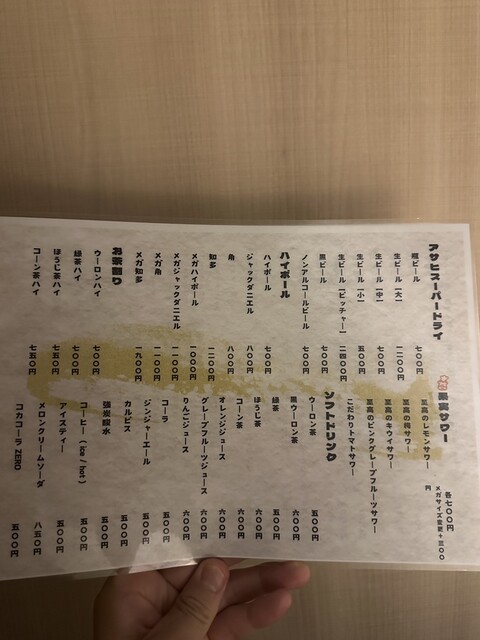 アサヒスーパードライ
瓶ビール 七〇〇円
生ビール【大】 一二〇〇円
生ビール【中】 七〇〇円
生ビール【小】 五〇〇円
生ビール【ピッチャー】 二四〇〇円
黒ビール 七〇〇円
ノンアルコールビール 七〇〇円
ハイボール
ハイボール 七〇〇円
ジャックダニエル 八〇〇円
角 八〇〇円
知多 一二〇〇円
メガハイボール 一〇〇〇円
メガジャックダニエル 一一〇〇円
メガ角 一一〇〇円
メガ知多 一九〇〇円
お茶割り
ウーロンハイ 七〇〇円
緑茶ハイ 七〇〇円
ほうじ茶ハイ 七五〇円
コーン茶ハイ 七五〇円
果実サワー
各七〇〇円
メガサイズ変更+三〇〇
円
至高のレモンサワー
至高の梅サワー
至高のキウイサワー
至高のピンクグレープフルーツサワー
こだわりトマトサワー
ソフトドリンク
ウーロン茶 五〇〇円
黒ウーロン茶 六〇〇円
緑茶 五〇〇円
ほうじ茶 六〇〇円
コーン茶 六〇〇円
オレンジジュース 六〇〇円
グレープフルーツジュース 六〇〇円
りんごジュース 六〇〇円
コーラ 五〇〇円
ジンジャーエール 五〇〇円
カルピス 五〇〇円
強炭酸水 五〇〇円
コーヒー(ice / hot) 五〇〇円
アイスティー 五〇〇円
メロンクリームソーダ 八五〇円
コカコーラ ZERO 五〇〇円